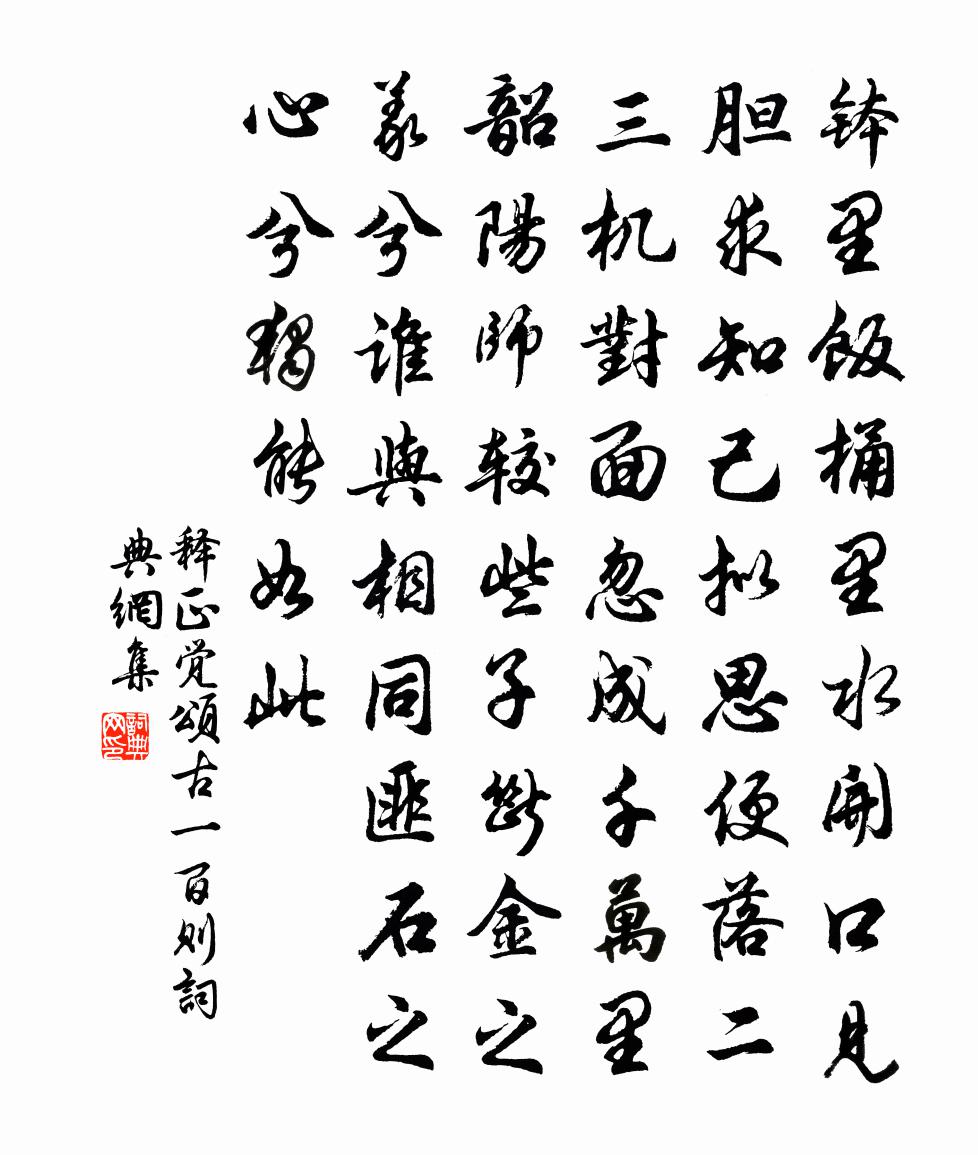 钵里飯桶里水開口見
胆求知己拟思便落二
三机對面忽成千萬里
韶陽師较些子斷金之
義兮谁與相同匪石之
心兮獨能如此
释正覚頌古一百则詞
典網集
詞典网印